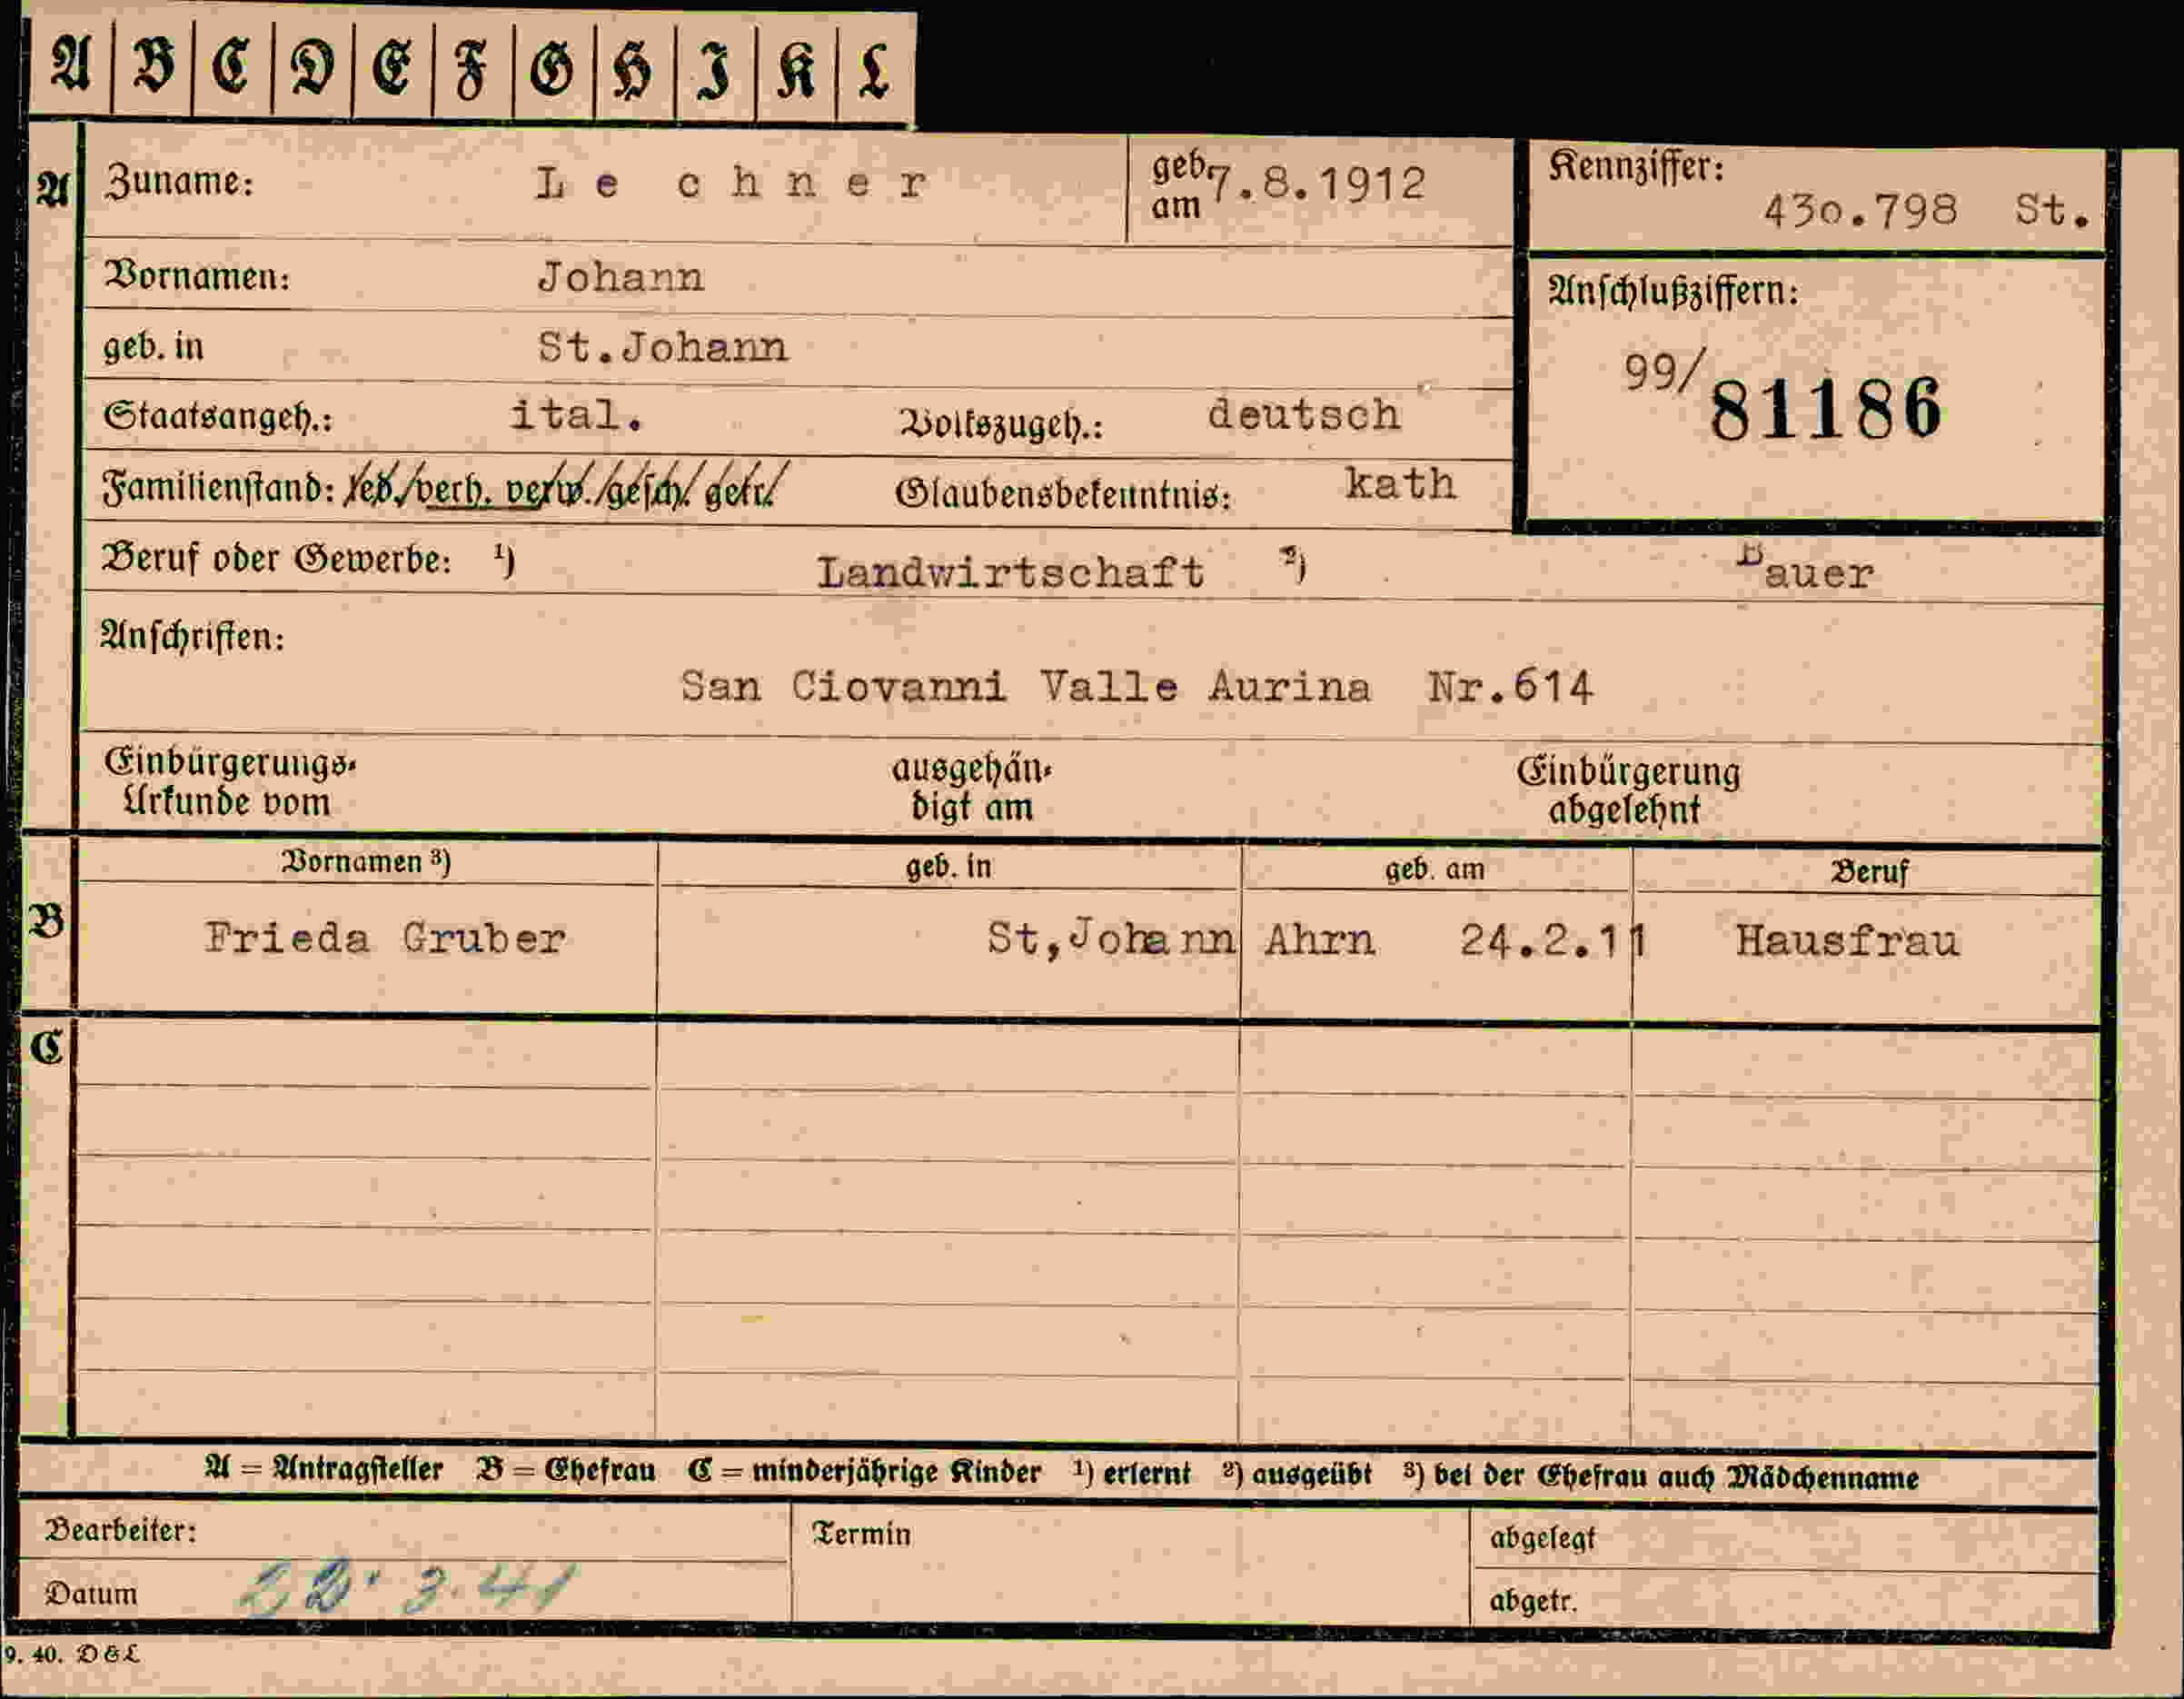 A B C D E F G H I K L
A Zuname: Le chner geb. am 7.8.1912 Kennziffer: 430.798 St.
Vornamen: Johann Anschlußziffern:
geb. in St.Johann 99/81186
Staatsangeh.: ital. Volkszugeh.: deutsch
Familienstand: led./verh. verw./gesch./getr. Glaubensbekenntnis: kath
Beruf oder Gewerbe: ¹) Landwirtschaft ²) Bauer
Anschriften:
San Ciovanni Valle Aurina Nr.614
Einbürgerungs- ausgehän- Einbürgerung
Urkunde vom digt am abgelehnt
Vornamen ³) geb. in geb. am Beruf
B Frieda Gruber St,Johann Ahrn 24.2.11 Hausfrau
C
A = Antragsteller B = Ehefrau C = minderjährige Kinder ¹) erlernt ²) ausgeübt ³) bei der Ehefrau auch Mädchenname
Bearbeiter: Termin abgelegt
Datum 22. 3. 41 abgetr.
9. 40. D&L